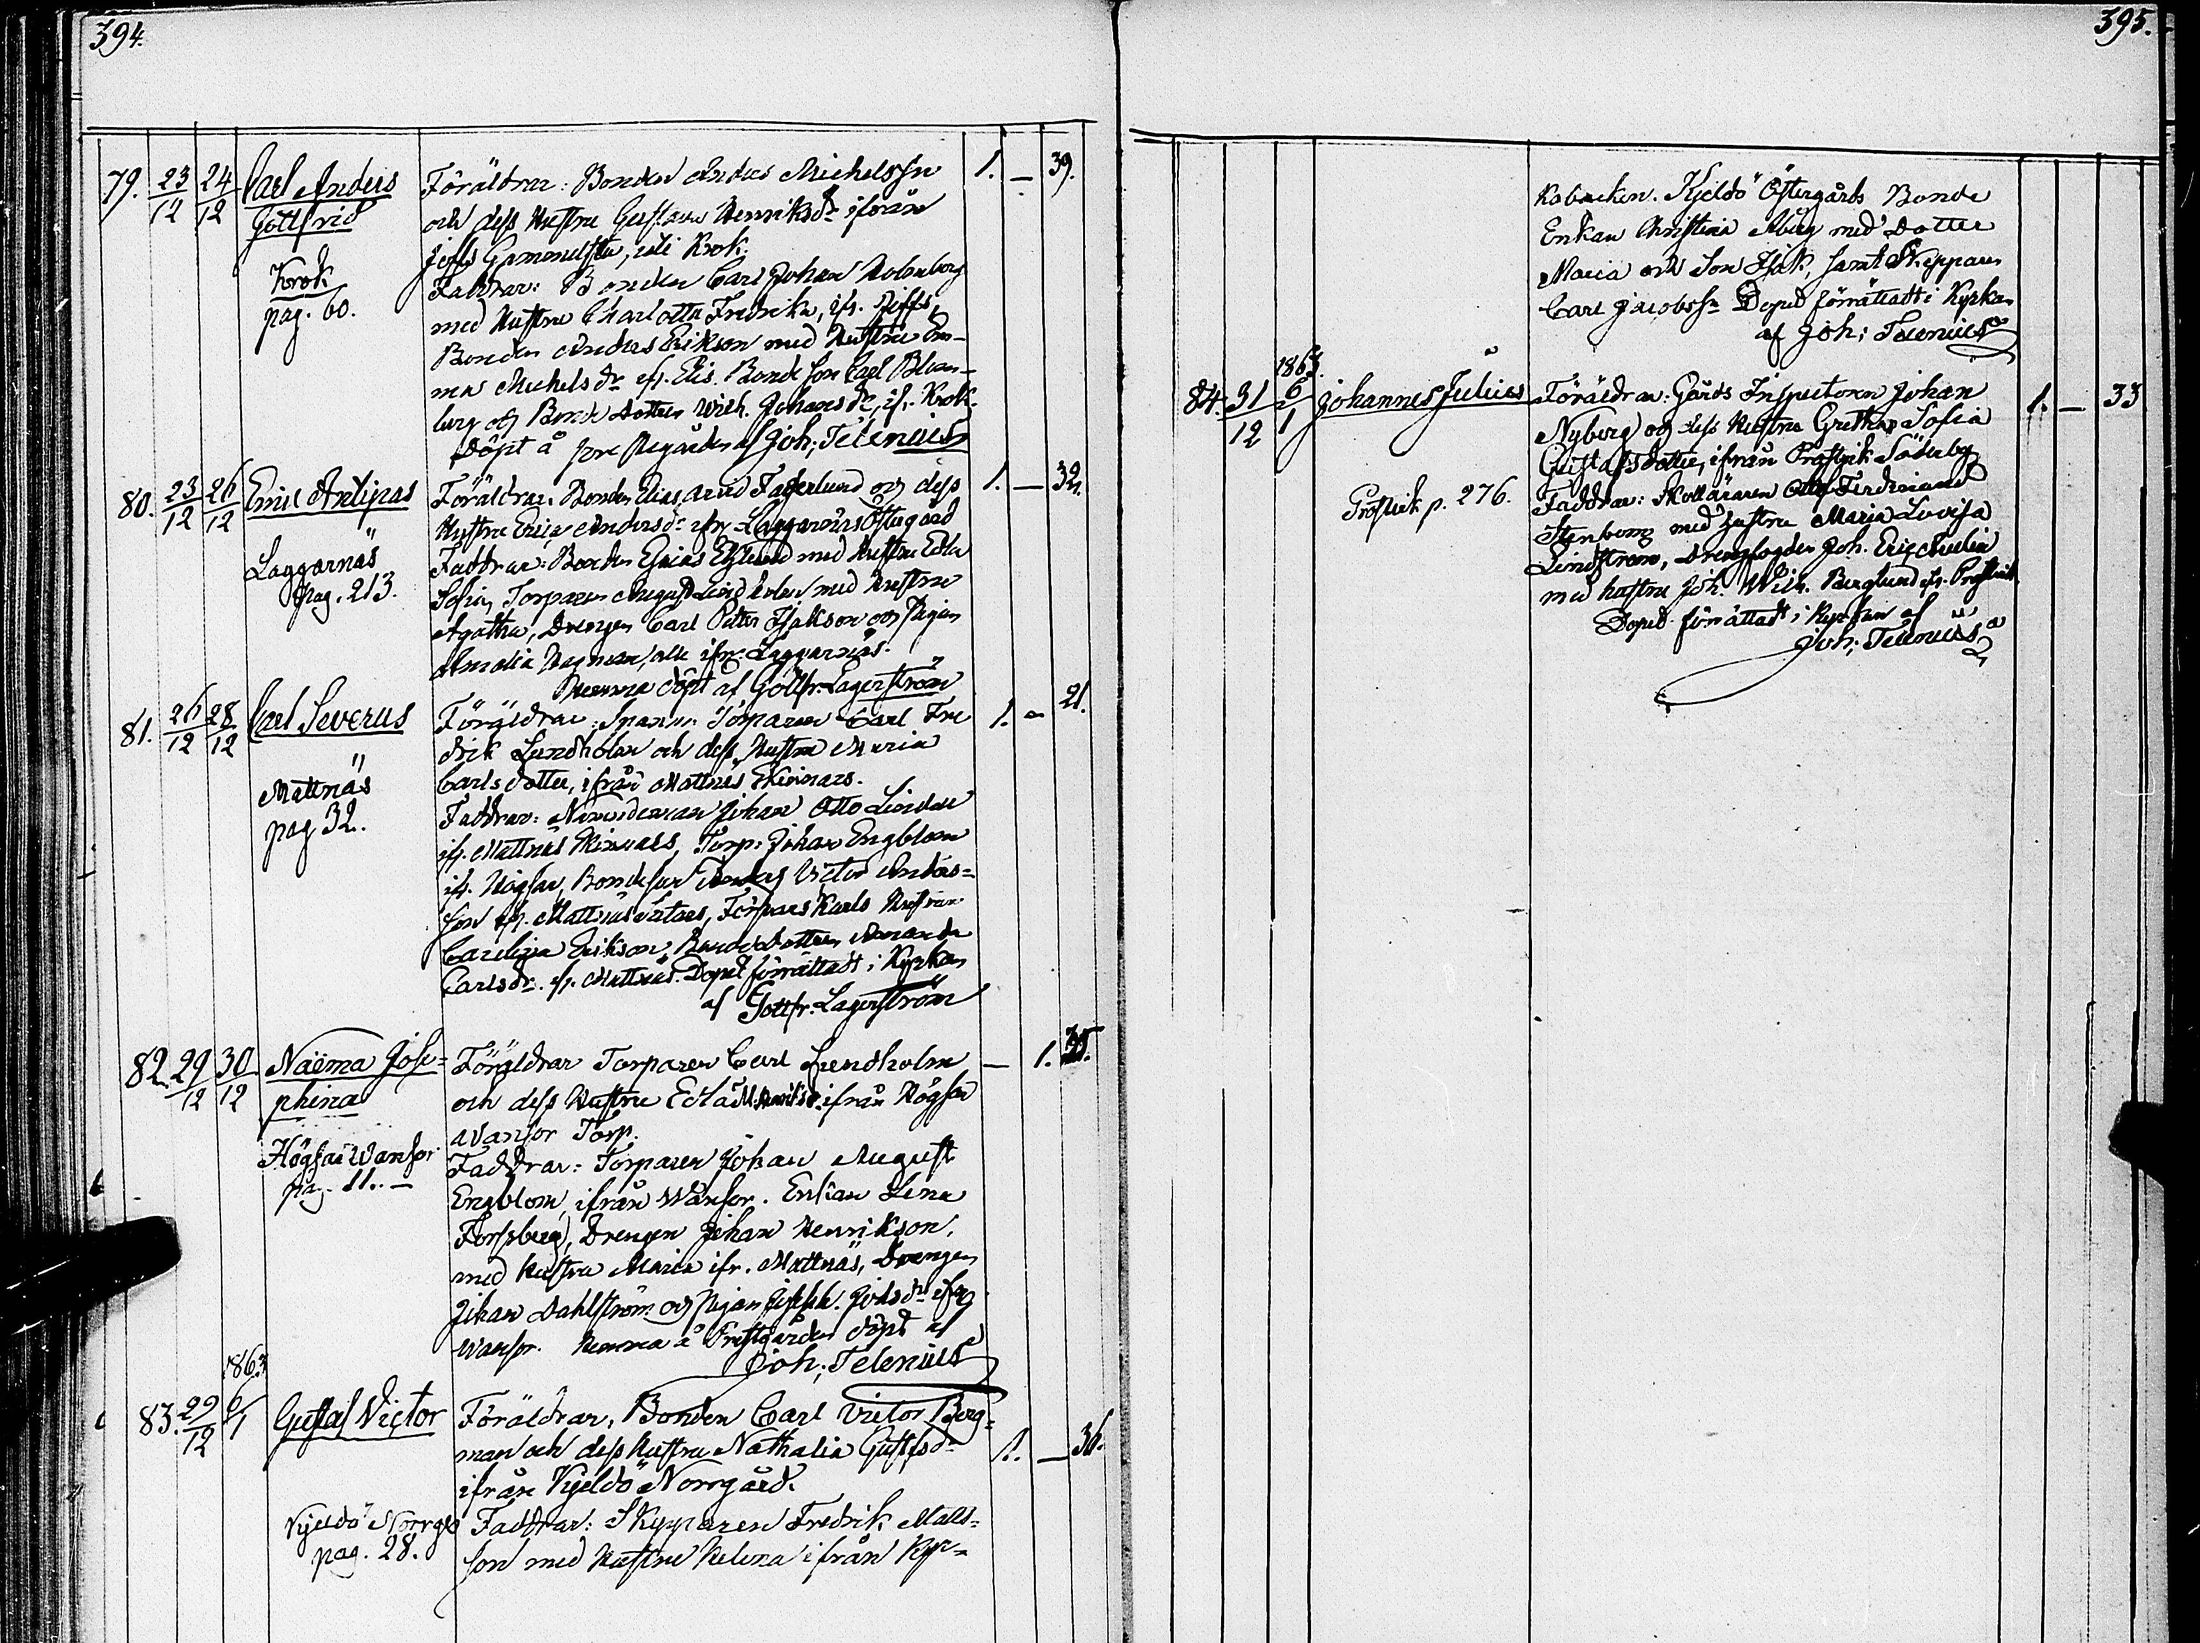 394.
79. 23/12 24/12 Carl Anders Gottfrid
Krok
pag. 60.
Föräldrar: Bonden Anders Michelsson 1. — 39.
och dess Hustru Gustava Henriksdr ifrån
Jofs Gammelstu, uti Krok.
Faddrar: Bonden Carl Johan Holmberg
med Hustru Charlotta Fredrika, ifr.
Bonden Anders Erikson med Hustru Em-
ma Michelsdr ifr. Elis. Bonde son Carl Blom-
berg och Bonde Dottren Wilh. Johansdr, ifr. Krok.
Döpt å af Joh; Telenius
80. 23/12 26/12 Emil Antipas
Laggarnäs
pag. 213.
Föräldrar: Bonden Elias Arvid Fagerlund och dess 1. — 32.
Hustru Erica Andersdr ifrn Laggarnäs Östergård
Faddrar: Bonden Esaias Eklund med Hustru Edla
Sofia, Torparen August Lindholm med Hustru
Agatha, Drengen Carl Petter Isakson och Pigan
Amalia Hagman, alla ifrn: Laggarnäs.
Hemma döpt af Gottfr. Lagerström
81. 26/12 28/12 Carl Severus
Mattnäs
pag 32.
Föräldrar: Torparen Carl Fre 1. — 21.
drik Lundholm och dess Hustru Maria
Carlsdotter, ifrån Mattnäs Skinnars.
Faddrar: Nämndeman Johan Otto Lindell
ifr. Mattnäs Skinnars, Torp. Johan Engblom
ifr. Högsar, Bondeson Victor Anders-
son ifr. Mattnäs Torpars Karls Hustrun
Carolina Erikson, Bonde Dottren Amanda
Carlsdr. ifr. Mattnäs. Dopet förrättadt i Kyrkan
af Gottfr. Lagerström
82. 29/12 30/12 Naëma Jose-
phina
Högsar Wansor
pag. 11. —
Föräldrar Torparen Carl Lundholm — 1. 35.
och dess Hustru Edla M. Henriksdr. ifrån Högsar
Wansor Torp.
Faddrar: Torparen Johan August
Engblom, ifrån Wånsor. Enkan Lena
Forssberg, Drengen Johan Henrikson,
med Hustru Maria ifr. Mattnäs, Drengen
Johan Dahlström och Pigan Joseph. ifrn
Wansor. Hemma å Prestgården döpt af
Joh; Telenius
1863
83. 29/12 6/1 Gustaf Victor
Kjeldö Norrgd
pag. 28.
Föräldrar, Bonden Carl Victor Berg-
man och dess Hustru Nathalia Gustfsdr 1. — 36.
ifrån Kjeldö Norrgård.
Faddrar: Skepparen Fredrik Matts-
son med Hustru Helena ifrån Kyr-
395.
kobacken. Kjeldö Östergårds Bonde
Enkan Christina Åberg med Dotter
Maria och Son Isak, samt Skepparen
Carl Jacobssn Dopet förrättadt i Kyrkan
af Joh; Telenius
1863.
84. 31/12 6/1 Johannes Julius
Prostvik p. 276.
Föräldrar: Gårds Inspectoren Johan 1. — 33
Nyberg och dess Hustru Gretha Sofia
Gustafsdotter, ifrån Prostvik Söderby
Faddrar: Skolläraren Otto Ferdinand
Stenberg med hustru Maria Lovisa
Lindström, Drengfogden Joh. Eric
med hustru Joh. Wilh. Berglund ifr. Prostvik
Dopet förrättadt i Kyrkan af
Joh; Telenius